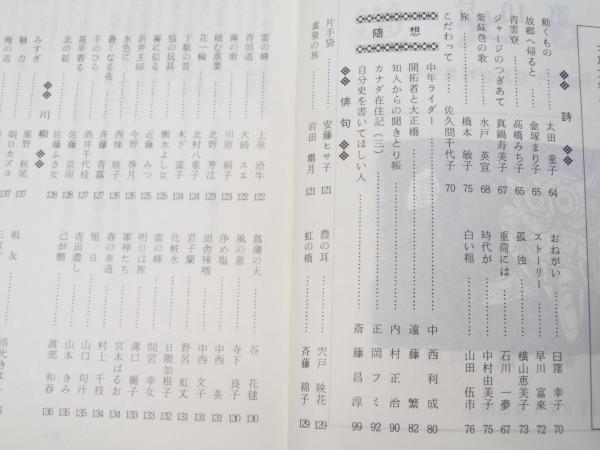 詩
動くもの………太田 重子 64
故郷へ帰ると………金塚まり子 65
青雲寮………高橋みち子 65
ジャージのつぎあて………真鍋寿美子 67
紫蘇巻の歌………水戸 英宣 68
旅………橋本 敏子 75
こだわって………佐久間千代子 70
おねがい………臼窪 幸子 70
ストーリー………早川 富来 72
孤独………横山恵美子 73
重荷には………石川 一夢 67
時代が………中村由美子 75
白い稲………山田 伍市 76
随想
中年ライダー………中西利成 80
開拓者と大正橋………遠藤 繁 82
知人からの聞きとり帳………内村正治 90
カナダ在住記(三)………正岡フミ 92
自分史を書いてほしい人………斎藤昌淳 99
俳句
片手袋………安藤ヒサ子 121
黄泉の旅………岩田 霜月 121
農の耳………宍戸 映花 129
虹の橋………斉藤 綿子 129
雲の峰………上原 治牛 122
青田道………大崎 スエ 122
霧の街………川原 絹子 123
積む落葉………北野 芳江 123
花一輪………北村八重子 124
下駄の音………木下 富子 124
猿の玩具………輿水よし女 125
霧に似る………近藤 みつ 125
今野 券月 126
水色に………西條 映子 126
蒼くなる夜………佐藤 青露 127
手のひら………酒井千代枝 127
甚平着る………佐藤 京雨 128
北の錠………佐藤ふき女 128
菖蒲の天………谷 花毬 130
風の意………寺下 良子 130
浄め塩………中西 英 131
田舎味噌………中西 文子 131
君子蘭………野呂 虹丈 131
化粧水………日隈加根子 132
雲の峰………間宮 幸女 133
明日は旅………溝口 麗子 133
軍神たち………宮本はるお 134
春の車道………村上 千枝 134
短日………山口 句汁 134
青田濃し………山本 きみ 135
己が………渡部 和春 136
川柳
みすぎ………栗野 秋尾 137
魅力………朝日カズヨ 137
俺の道
戦友